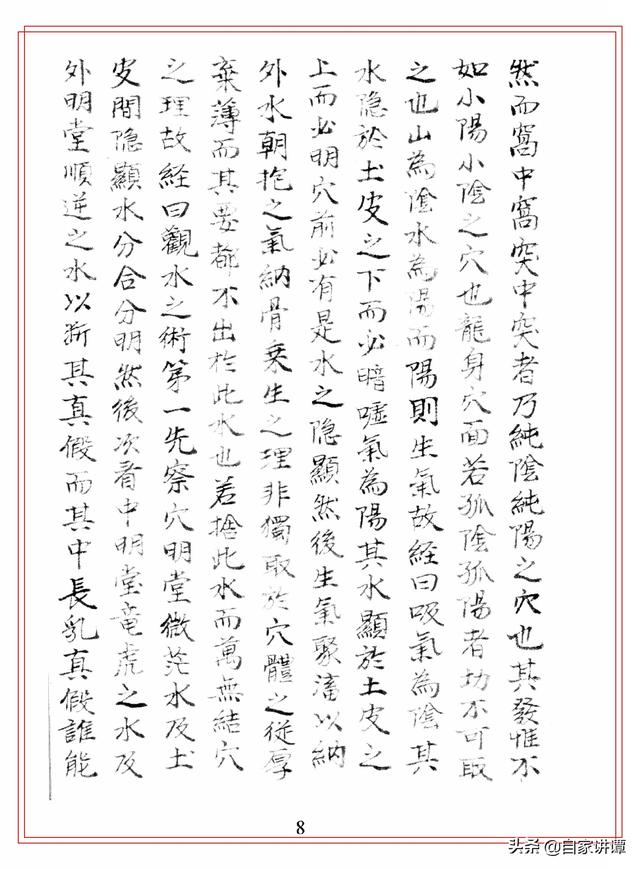 然而窩中窩突中突者乃純陰純陽之穴也其發惟不
如小陽小陰之穴也龍身穴面若孤陰孤陽者切不可取
之也山為陰水為陽而陽則生氣故経曰吸氣為陰其
水隐於土皮之下而必暗噓氣為陽其水顯於土皮之
上而必明穴前必有是水之隐顯然後生氣聚滀以納
外水朝抱之氣納骨乗生之理非獨取於穴體之従厚
棄薄而其要都不出於此水也若捨此水而萬無結穴
之理故経曰觀水之術第一先察穴明堂微茫水及土
皮間隐顯水分合分明然後次看中明堂竜虎之水及
外明堂順逆之水以斷其真假而其中長乳真假誰能
8
头条 @自家讲谭